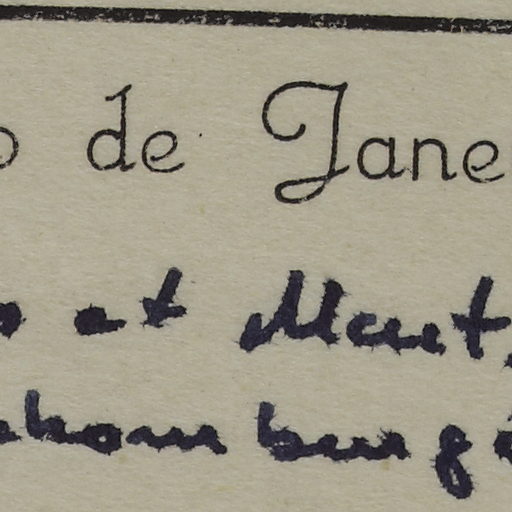 o de Jane
s at Mart.
chomburg